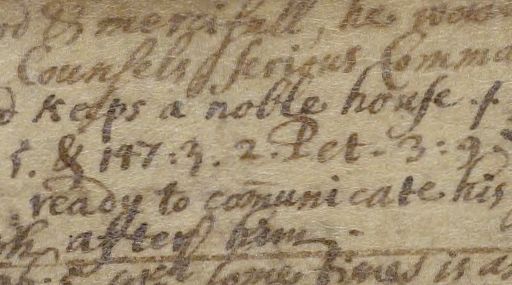 & mercifull, he
Counsels serious Comma
keeps a noble house.
5. & 147.3. 2. Pet. 3:9.
ready to comunicate his
after him.
some times is